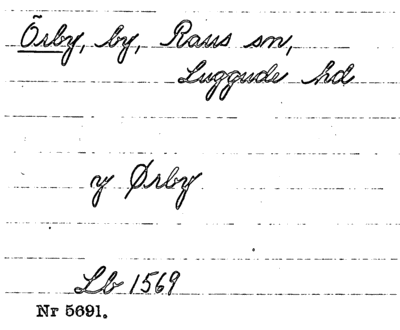 Örby, by, Raus sn,
Luggude hd
y Ørby
Lb 1569
Nr 5691.